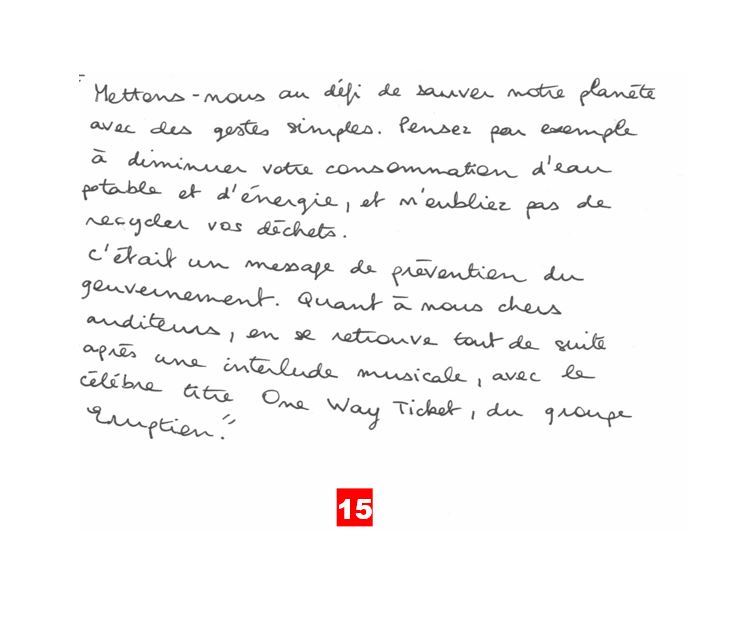 Mettons-nous au défi de sauver notre planète
avec des gestes simples. Pensez par exemple
à diminuer votre consommation d'eau
potable et d'énergie, et n'oubliez pas de
recycler vos déchets.
c'était un message de prévention du
gouvernement. Quant à nous chers
auditeurs, on se retrouve tout de suite
après une interlude musicale, avec le
célèbre titre One Way Ticket, du groupe
"Eruption."
15